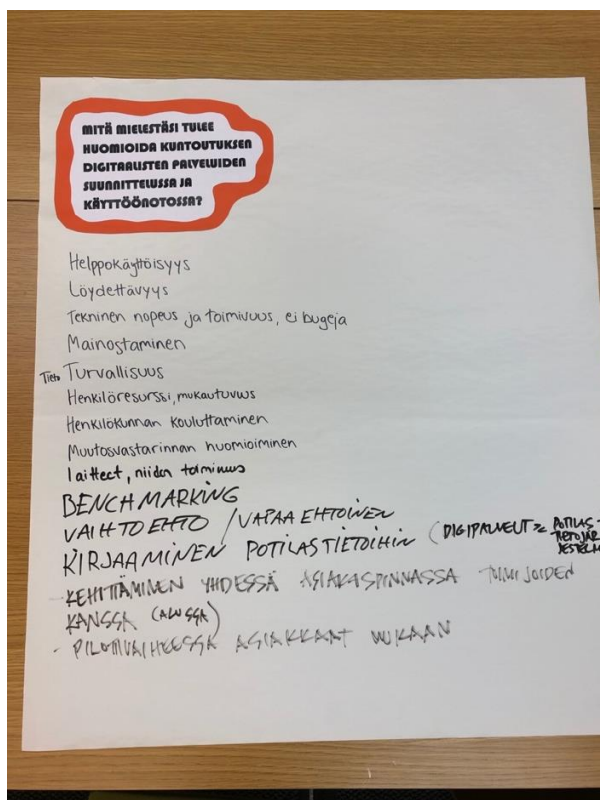 MITÄ MIELESTÄSI TULEE
HUOMIOIDA KUNTOUTUKSEN
DIGITAALISTEN PALVELUIDEN
SUUNNITTELUSSA JA
KÄYTTÖÖNOTOSSA?
Helppokäyttöisyys
Löydettävyys
Tekninen nopeus ja toimivuus, ei bugeja
Mainostaminen
Tieto Turvallisuus
Henkilöresurssi, mukautuvuus
Henkilökunnan kouluttaminen
Muutosvastarinnan huomioiminen
laitteet, niiden toimivuus
BENCHMARKING
VAIHTOEHTO / VAPAAEHTOINEN
KIRJAAMINEN POTILASTIETOIHIN (DIGIPALVELUT POTILAS-
TIETOJÄR-
JESTELM
- KEHITTÄMINEN YHDESSÄ ASIAKASPINNASSA TOIMIJOIDEN
KANSSA (ALUSSA)
- PILOTTIVAIHEESSA ASIAKKAAT MUKAAN